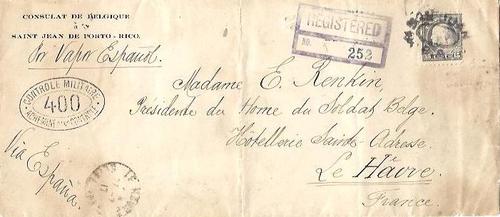 CONSULAT DE BELGIQUE
à
SAINT JEAN DE PORTO-RICO.
Por Vapor Español.
REGISTERED
NO. 252
CONTROLE MILITAIRE
400
Via España.
Madame E. Renkin,
Présidente du Home du Soldat Belge.
Hôtellerie Sainte-Adresse.
Le Hâvre
France.